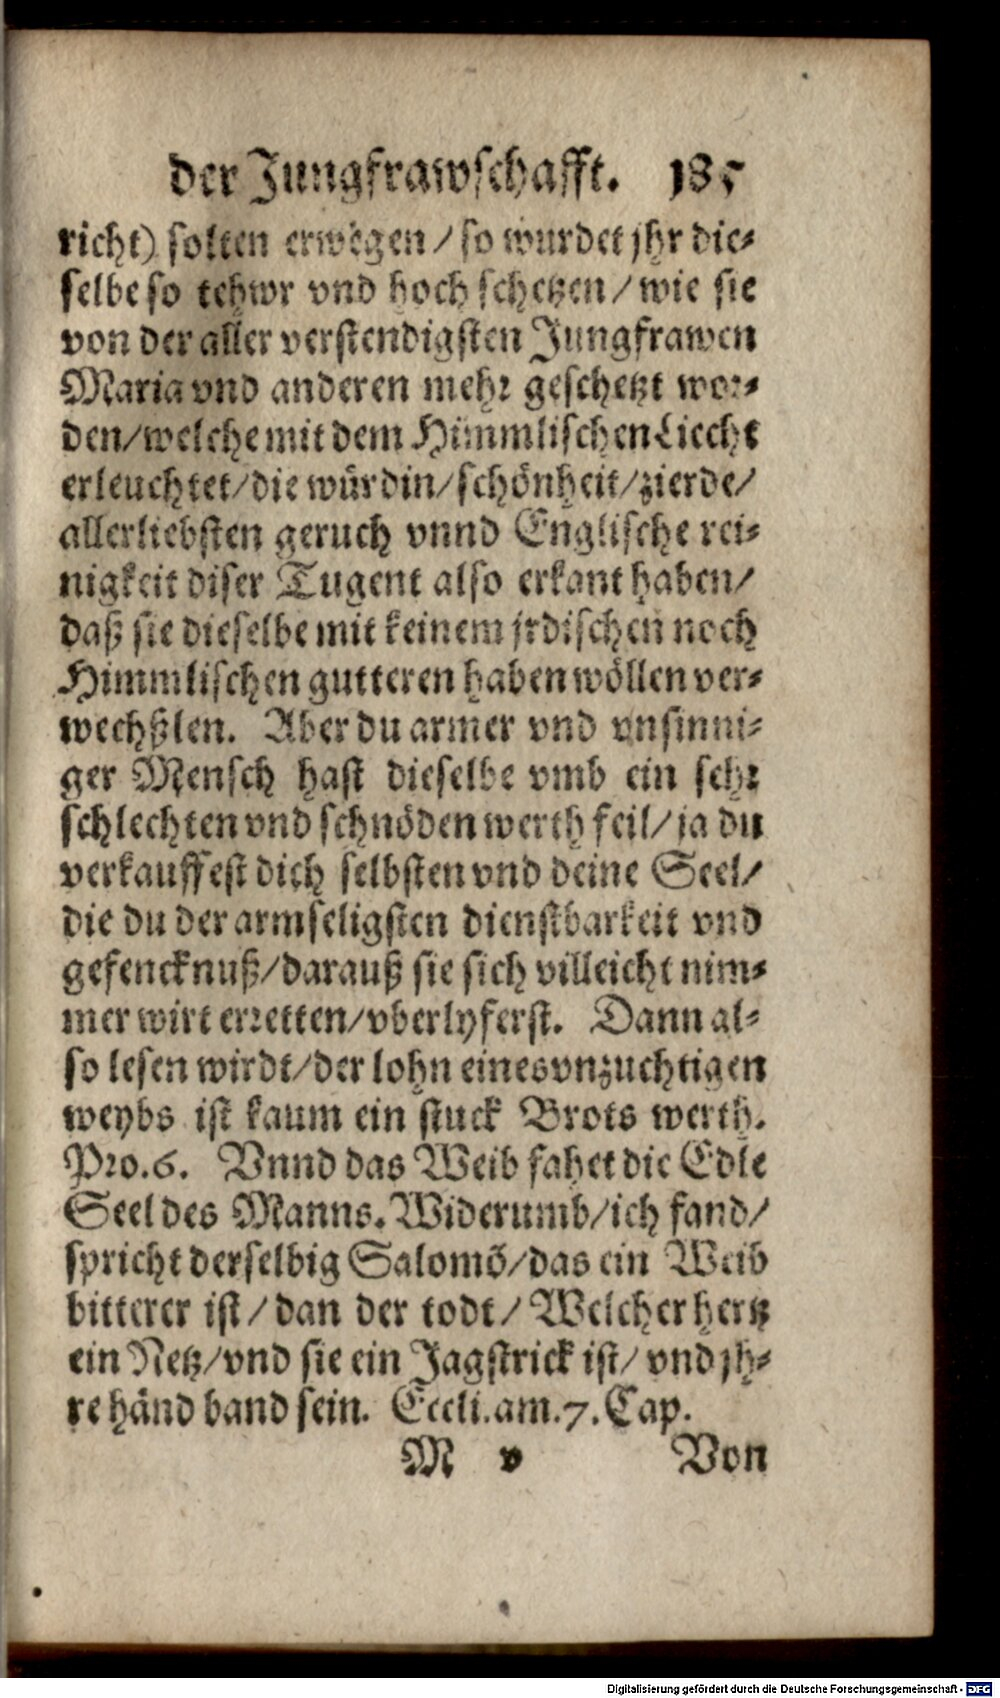 der Jungfrawschafft. 185
richt) solten erwegen / so wurdet jhr die-
selbe so tehwr vnd hoch schetzen / wie sie
von der aller verstendigsten Jungfrawen
Maria vnd anderen mehr geschetzt wor-
den/welche mit dem Himmlischen Liecht
erleuchtet/die würdin/schönheit/zierde/
allerliebsten geruch vnnd Englische rei-
nigkeit diser Tugent also erkant haben/
daß sie dieselbe mit keinem jrdischen noch
Himmlischen gutteren haben wöllen ver-
wechßlen. Aber du armer vnd vnsinni-
ger Mensch hast dieselbe vmb ein sehr
schlechten vnd schnöden werth feil/ja du
verkauffest dich selbsten vnd deine Seel/
die du der armseligsten dienstbarkeit vnd
gefencknuß/darauß sie sich villeicht nim-
mer wirt erretten/vberlyferst. Dann al-
so lesen wirdt/der lohn eines vnzuchtigen
weybs ist kaum ein stuck Brots werth.
Pro.6. Vnnd das Weib fahet die Edle
Seel des Manns. Widerumb/ich fand/
spricht derselbig Salomõ/das ein Weib
bitterer ist/dan der todt/Welcher hertz
ein Netz/vnd sie ein Jagstrick ist/vnd jh-
re händ band sein. Eccli.am.7.Cap.
M v Von
Digitalisierung gefördert durch die Deutsche Forschungsgemeinschaft - DFG